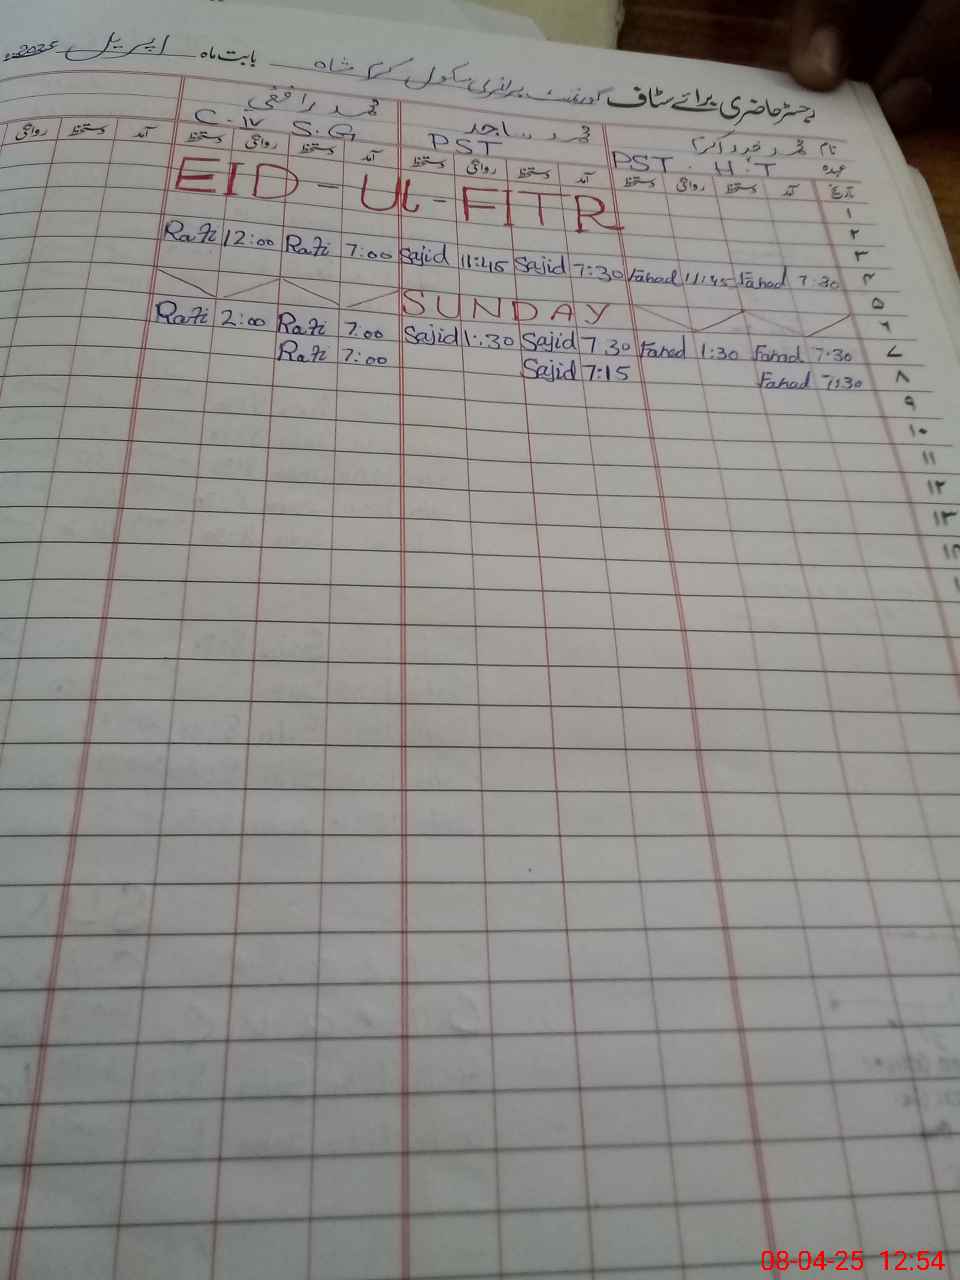 رجسٹر حاضری برائے سٹاف گورنمنٹ پرائمری سکول کرم شاہ بابت ماہ اپریل 2025ء
نام محمد فہد اکرم محمد ساجد محمد رافع
عہدہ PST . H.T PST C-IV S.G
تاریخ آمد دستخط روانگی دستخط آمد دستخط روانگی دستخط آمد دستخط روانگی دستخط آمد دستخط روانگی
۱
EID - UL - FITR
۲
۳
Rafi 12:00 Rafi 7:00 Sajid 11:45 Sajid 7:30 Fahad 11:45 Fahad 7:30 ۴
۵
SUNDAY ۶
Rafi 2:00 Rafi 7:00 Sajid 1:30 Sajid 7.30 Fahad 1:30 Fahad 7.30 ۷
Rafi 7:00 Sajid 7:15 Fahad 7:30 ۸
۹
۱۰
۱۱
۱۲
۱۳
08-04-25 12:54